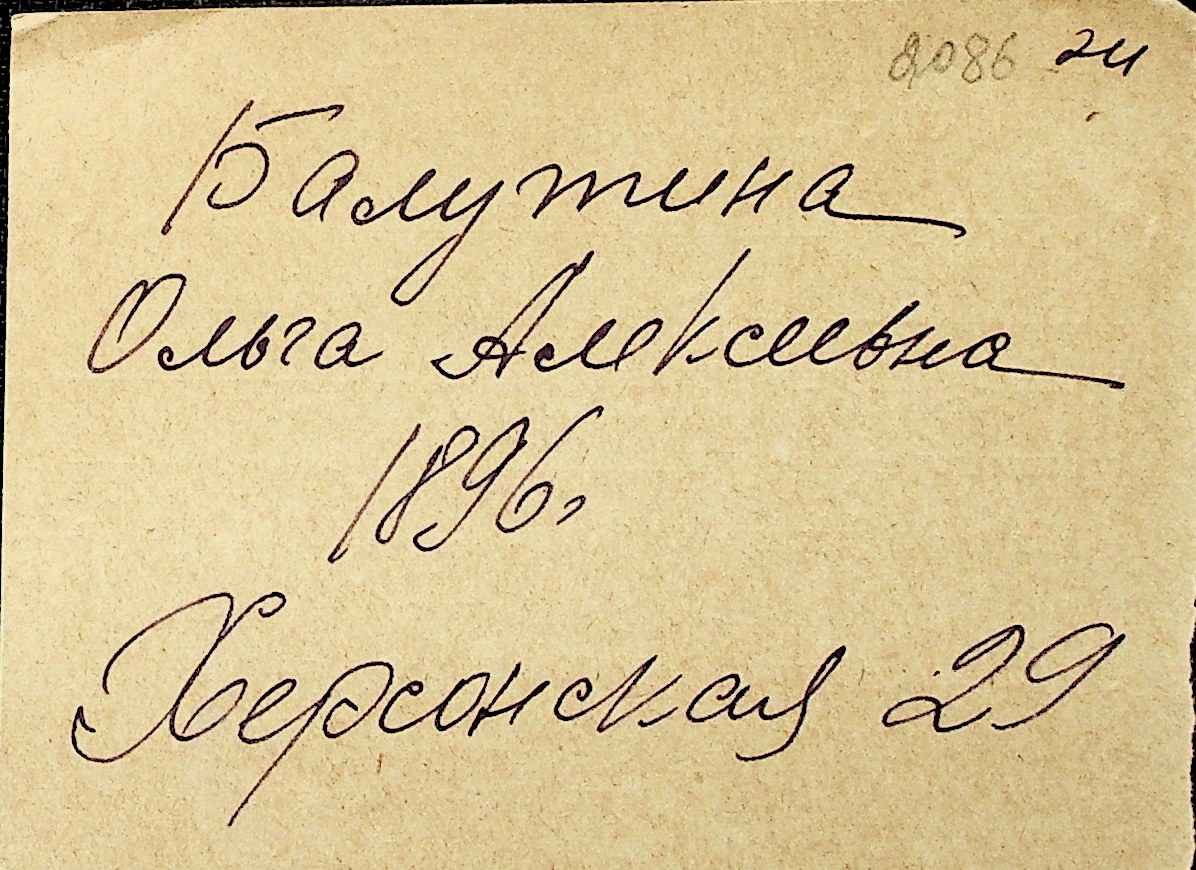 2086
Балутина
Ольга Алексеевна
1896г
Херсонская 29